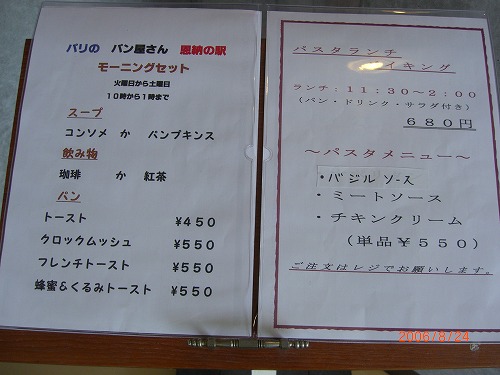 パリの パン屋さん 恩納の駅
モーニングセット
火曜日から土曜日
10時から1時まで
スープ
コンソメ か パンプキンス
飲み物
珈琲 か 紅茶
パン
トースト ¥450
クロックムッシュ ¥550
フレンチトースト ¥550
蜂蜜&くるみトースト ¥550
パスタランチ
イキング
ランチ:11:30~2:00
(パン・ドリンク・サラダ付き)
680円
~パスタメニュー~
・バジルソース
・ミートソース
・チキンクリーム
(単品¥550)
ご注文はレジでお願いします。
2006/8/24